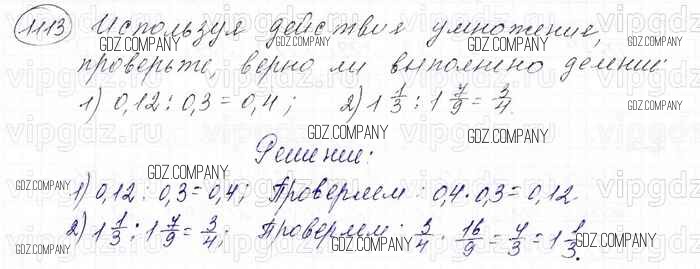 1113 Используя действия умножение,
GDZ.COMPANY GDZ.COMPANY GDZ.COMPANY
проверьте, верно ли выполнено деление:
GDZ.COMPANY
1) 0,12 : 0,3 = 0,4; 2) 1 1/3 : 1 7/9 = 3/4.
GDZ.COMPANY GDZ.COMPANY
vipgdz.ru
GDZ.COMPANY
Решение:
GDZ.COMPANY GDZ.COMPANY
1) 0,12 : 0,3 = 0,4; Проверяем: 0,4 · 0,3 = 0,12.
GDZ.COMPANY
2) 1 1/3 : 1 7/9 = 3/4; Проверяем: 3/4 · 16/9 = 4/3 = 1 1/3.
GDZ.COMPANY GDZ.COMPANY